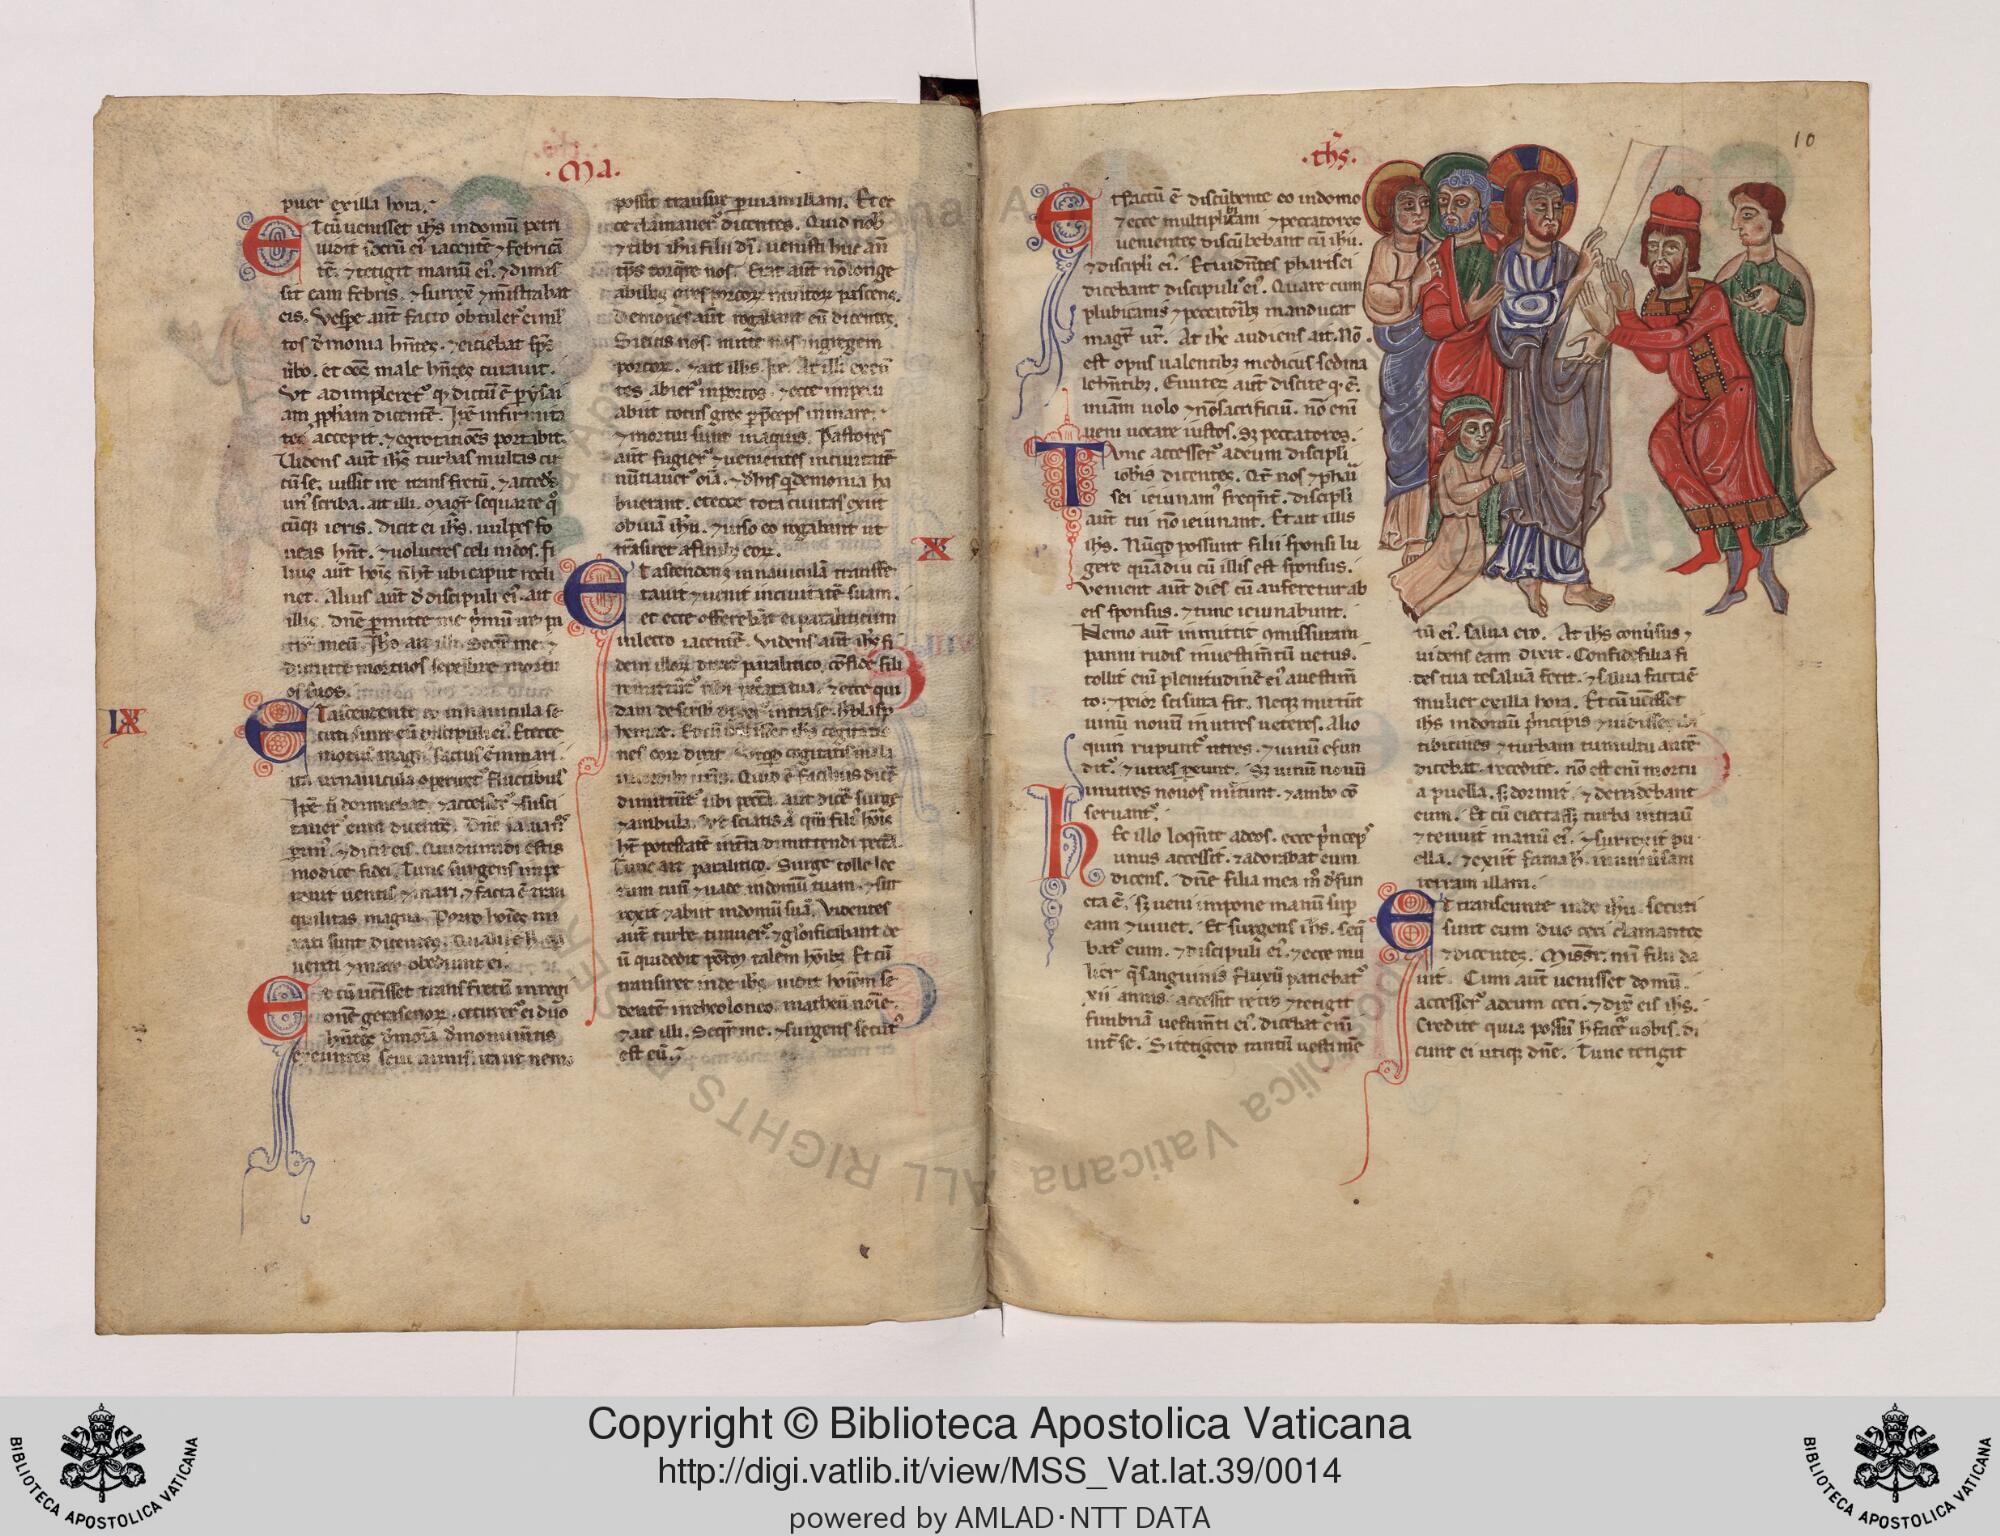 ·Ma·
puer ex illa hora.
Et cū uenisset ihs in domū petri
uidit socrū ei' iacentē ⁊ febricitā
tē. ⁊ tetigit manū ei'. ⁊ dimi
sit eam febris. ⁊ surrex ⁊ mīstrabat
eis. Vespe aut facto obtuler' ei mul
tos demonia hntes. ⁊ eiciebat sps
ubo. et oēs male hntes curauit.
Ut adimpleret' qd dictū ē p ysai
am ppham dicentē. Ipe infirmita
tes accepit. ⁊ egrotatiōes portabit.
Uidens aut ihs turbas multas cir
cū se. iussit ire trans fretū. ⁊ accedēs
un' scriba. ait illi. Magr sequar te qo
cūq; ieris. Dicit ei ihs. uulpes fo
ueas hnt. ⁊ uolucres celi nidos. fi
lius aut hois n ht ubi caput recli
net. Alius aut de discipulis ei' ait
illi. Dne pmitte me pmū ire
meū. Ihs ait illi. Seqre me ⁊
dimitte mortuos sepelire mortu
os suos.
IX
Et ascendente eo in nauicula se
cuti sunt eū discipuli ei'. Et ecce
motus magn' factus ē in mari.
ita ut nauicula operiret' fluctibus
Ipe u dormiebat. ⁊ accesser' ⁊ susci
tauer' eum dicentes. Dne salua nos
perim'. ⁊ dicit eis. Quid timidi estis
modice fidei. Tunc surgens impe
rauit uentis ⁊ mari. ⁊ facta ē tran
quilitas magna. Porro hoies mi
rati sunt dicentes. Qualis ē hic
uenti ⁊ mare obediunt ei.
Et cū uenisset trans fretū in regi
onē gerasenor. occurrer' ei duo
hntes demonia de monumtis
exeuntes seui nimis. ita ut nemo
possit transire p uiam illam. Et ec
ce clamauer' dicentes. Quid nob
⁊ tibi ihu filii di. uenisti huc an
tps torqre nos. Erat aut nō longe
ab illis grex porcor multor pascens.
Demones aut rogabant eū dicentes.
Si eicis nos. mitte nos in gregem
porcor. ⁊ ait illis. Ite. At illi exeū
tes abier' in porcos. ⁊ ecce impetu
abiit totus grex p pceps in mare.
⁊ mortui sunt in aquis. Pastores
aut fugier' ⁊ uenientes in ciuitatē
nūtiauer' oia. ⁊ de his q demonia ha
buerant. et ecce tota ciuitas exiit
obuiā ihu. ⁊ uiso eo rogabant ut
trāsiret a finib; eor.
X
Et ascendens in nauiculā transfre
tauit ⁊ uenit in ciuitatē suam.
et ecce offerebāt ei paraliticum
in lecto iacentē. Videns aut ihs fi
dem illor dixit paralitico. cōfide fili
remittūt' tibi peccata tua. ⁊ ecce qui
dam de scribis dixer' intra se. h blasp
hemat. Et cū uidisset ihs cogitatio
nes eor dixit. Ut qd cogitatis mala
in cordib; uris. Quid ē facilius dicē
dimittūt' tibi pecca. aut dicē surge
⁊ ambula. Ut sciatis a qm fili' hois
ht potestatē in tra dimittendi pecca.
Tunc ait paralitico. Surge tolle lec
tum tuū ⁊ uade in domū tuam. ⁊ sur
rexit ⁊ abiit in domū suā. Videntes
aut turbe timuer' ⁊ glorificabant de
ū qui dedit potem talem hoib; Et cū
transiret inde ihs. uidit hoiem se
dentē in theolonco. matheū noie.
⁊ ait illi. Seqre me. ⁊ surgens secut'
est eū.
·ihs·
10
Et factū ē discūbente eo in domo
⁊ ecce multi publicani ⁊ peccatores
uenientes discūbebant cū ihu.
⁊ discipli ei'. Et uidntes pharisei
dicebant discipuli' ei'. Quare cum
plubicanis ⁊ peccatorib; manducat
magr ur. At ihs audiens ait. Nō
est opus ualentib; medicus sed ma
le hntib;. Euntes aut discite qd ē.
miam uolo ⁊ nō sacrificiū. nō eni
ueni uocare iustos. sz peccatores.
Tunc accesser' ad eum discipli
iohis dicentes. Qr nos ⁊ phari
sei ieiunam' freqnt. discipli
aut tui nō ieiunant. Et ait illis
ihs. Nūqd possunt filii sponsi lu
gere quādiu cū illis est sponsus.
Venient aut dies cū auferetur ab
eis sponsus. ⁊ tunc ieiunabunt.
Nemo aut inmittit cmissuram
panni rudis in uestimtū uetus.
tollit eni plenitudinē ei' a uestim
to. ⁊ peior scisura fit. Neq; mittūt
uinū nouū in utres ueteres. Alio
quin rupunt' utres. ⁊ uinū efun
dit'. ⁊ utres peunt. Sz uinū nouū
in utres nouos mittunt. ⁊ ambo cō
seruant'.
Hec illo loqnte ad eos. ecce princeps
unus accessit. ⁊ adorabat eum
dicens. Dne filia mea m defun
cta ē. sz ueni impone manū sup
eam ⁊ uiuet. Et surgens ihs. seq
bat' eum. ⁊ discipuli ei'. ⁊ ecce mu
lier q sanguinis fluxū patiebat'
xii annis. accessit retro ⁊ tetigit
fimbriā uestimti ei'. dicebat eni
int se. Si tetigero tantū uestimē
tū ei'. salua ero. At ihs cōuersus ⁊
uidens eam dixit. Confide filia fi
des tua te saluā fecit. ⁊ salua facta ē
mulier ex illa hora. Et cū uenisset
ihs in domū principis ⁊ uidisset
tibicines ⁊ turbam tumultuantē
dicebat. recedite. nō est eni mortu
a puella. sz dormit. ⁊ deridebant
eum. Et cū eiecta esset turba intrauit
⁊ tenuit manū ei'. ⁊ surrexit pu
ella. ⁊ exiit fama h in uniuersam
terram illam.
Et transeunte inde ihu. secuti
sunt eum duo ceci clamantes
⁊ dicentes. Miser. nri filii da
uit. Cum aut uenisset domū.
accesser' ad eum ceci. ⁊ dix eis ihs.
Credite quia possū h facē uobis. di
cunt ei utiq; dne. Tunc tetigit
Copyright © Biblioteca Apostolica Vaticana
http://digi.vatlib.it/view/MSS_Vat.lat.39/0014
powered by AMLAD·NTT DATA
BIBLIOTECA APOSTOLICA VATICANA
BIBLIOTECA APOSTOLICA VATICANA